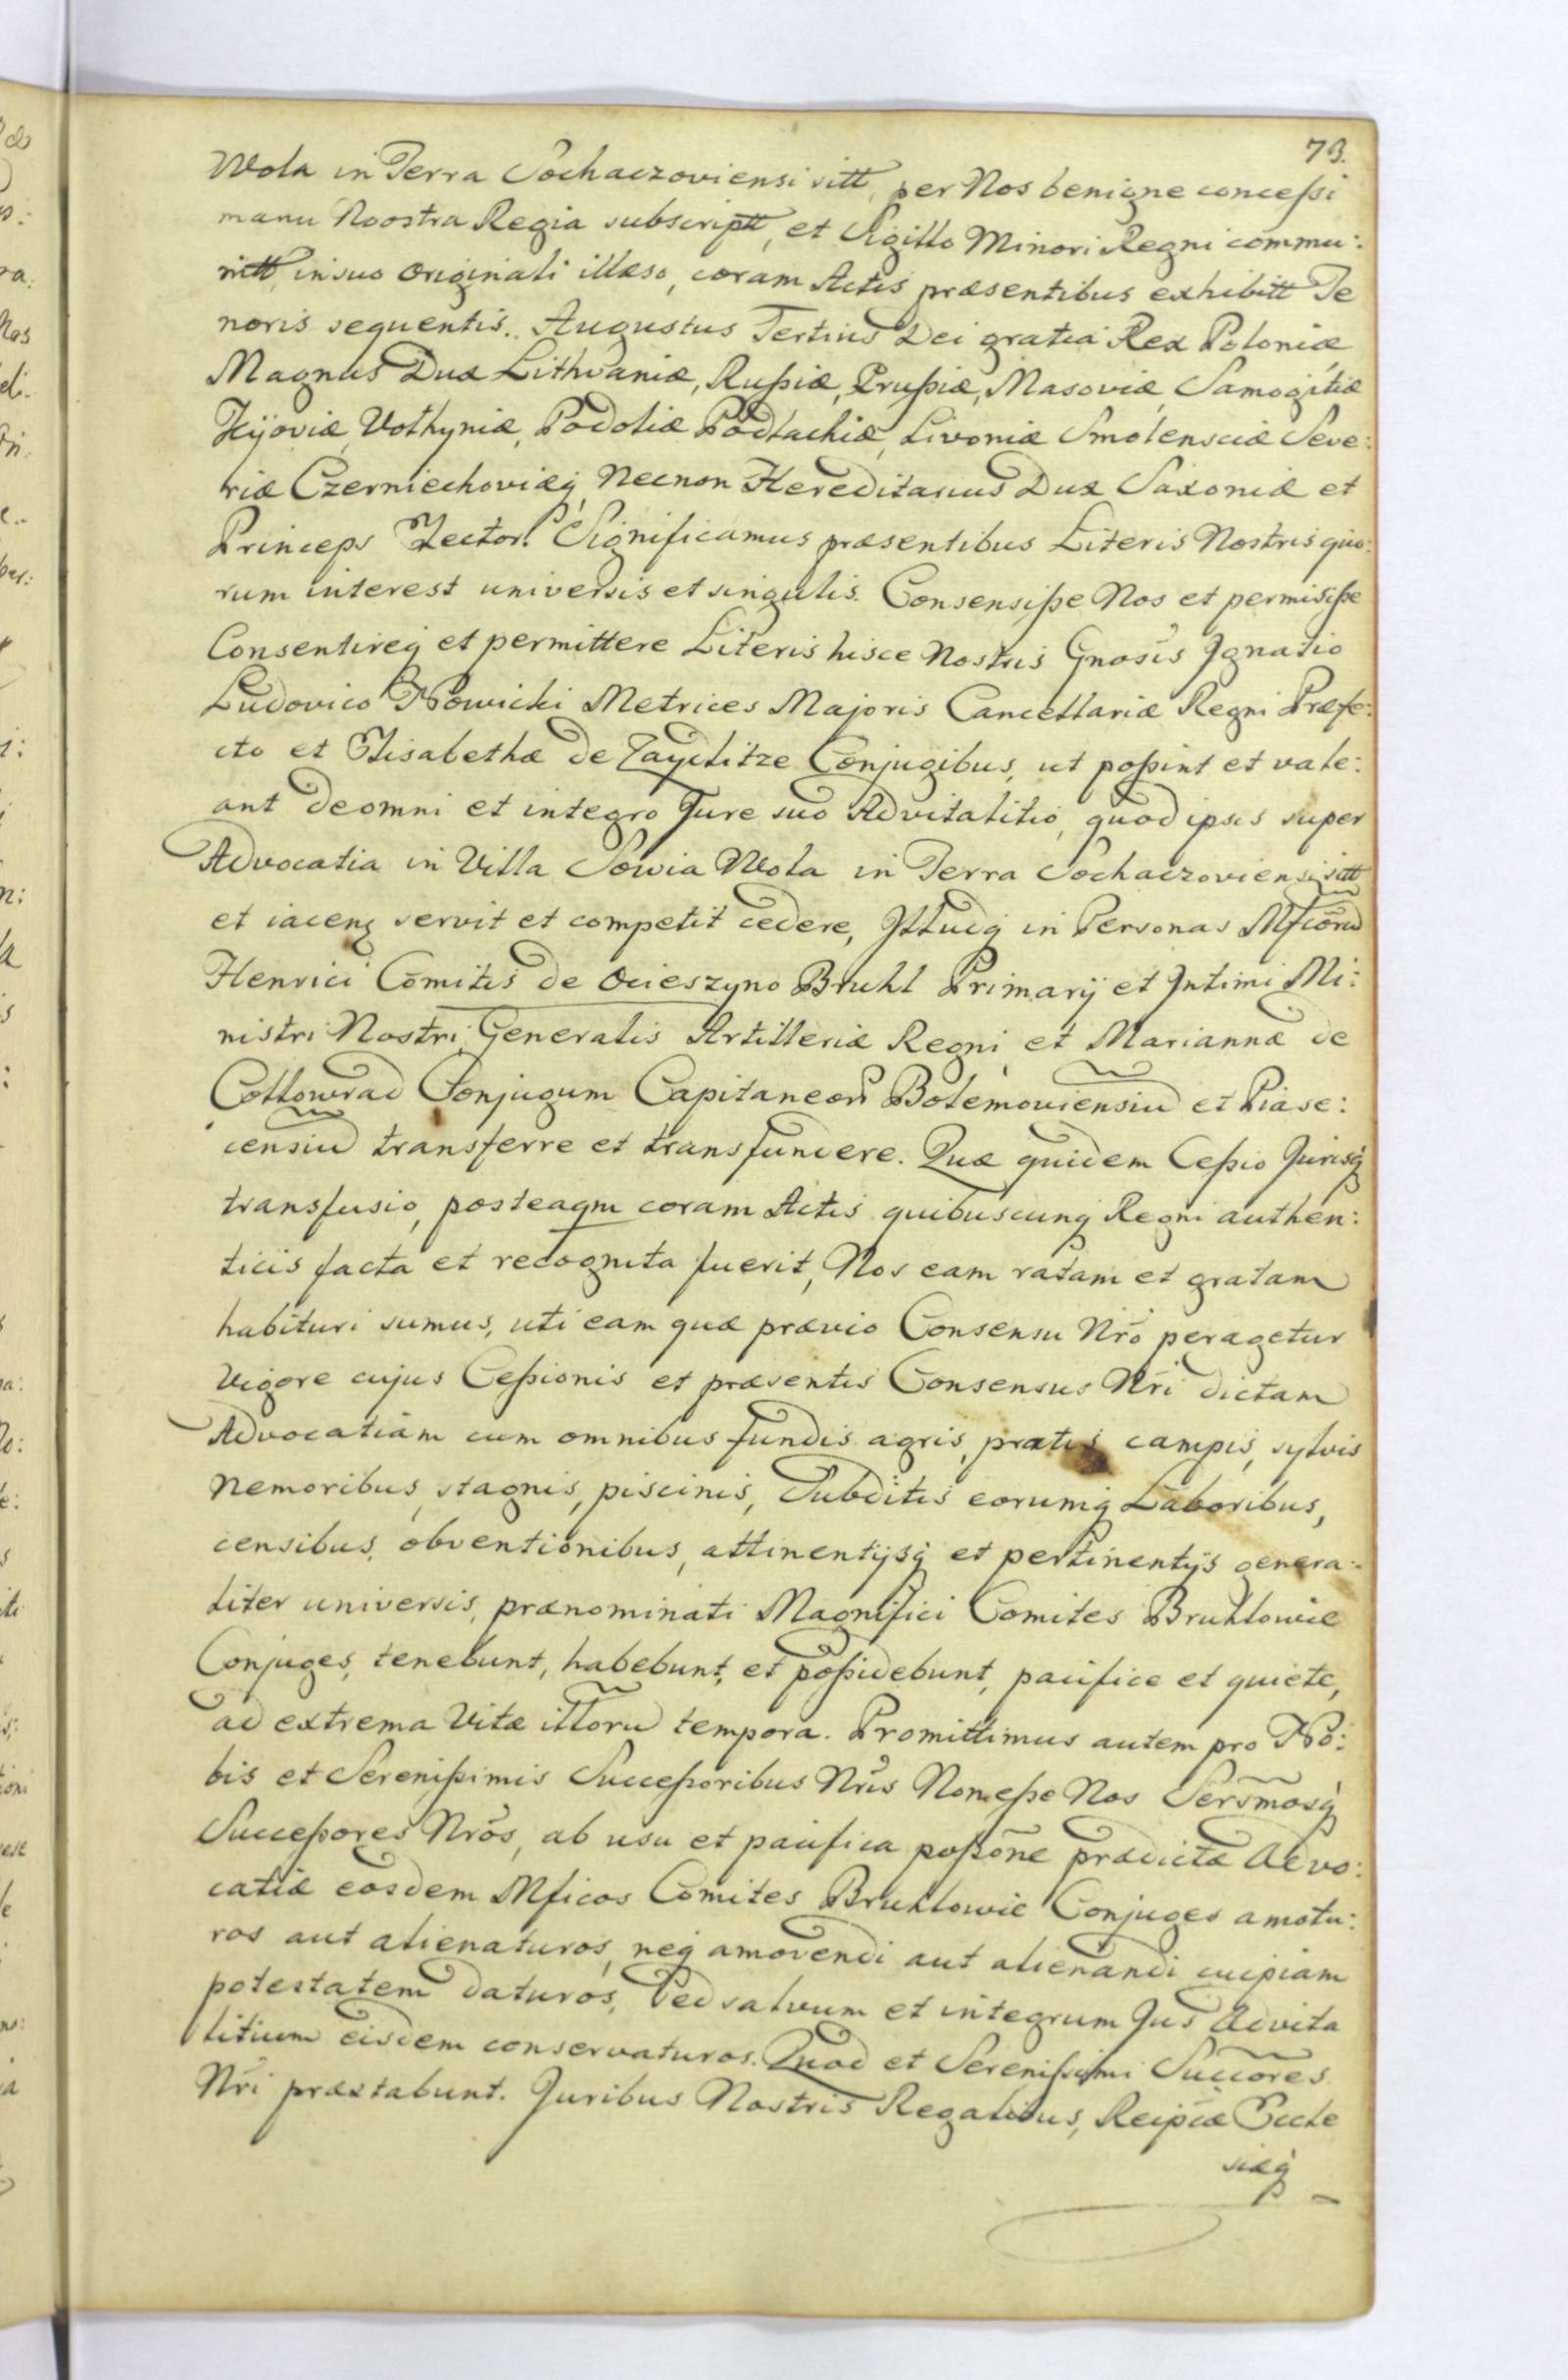 73.
Wola in Terra Sochaczoviensi sitt, per Nos benigne concessi
manu Noostra Regia subscriptt, et Sigillo Minori Regni commu:
nitt, in suo Originali illæso, coram Actis præsentibus exhibitt Te
noris sequentis. Augustus Tertius Dei gratia Rex Poloniæ
Magnus Dux Lithvaniæ, Russiæ, Prussiæ, Masoviæ, Samogitiæ
Kijoviæ, Volhyniæ, Podoliæ Podlachiæ, Livoniæ Smolensciæ Seve:
riæ Czerniechoviæq, Necnon Hereditarius Dux Saxoniæ et
Princeps Elector. Significamus præsentibus Literis Nostris quo:
rum interest universis et singulis. Consensisse Nos et permisisse
Consentireq et permittere Literis hisce Nostris Gnosis Ignatio
Ludovico Nowicki Metrices Majoris Cancellariæ Regni Præfe:
cto et Elisabethæ de Zayditze Conjugibus, ut possint et vale:
ant de omni et integro Jure suo Advitalitio, quod ipsis super
Advocatia in Villa Sowia Wola in Terra Sochaczoviensi sitt
et iacenq servit et competit cedere, Illudq in Personas Mficorũ
Henrici Comitis de Ocieszyno Bruhl Primarij et Intimi Mi:
nistri Nostri, Generalis Artilleriæ Regni et Mariannæ de
Collowrad Conjugum Capitaneorũ Bolemoviensiũ et Piase:
censiũ transferre et transfundere. Quæ quidem Cessio Jurisq
transfusio, posteaqm coram Actis quibuscunq Regni authen:
ticis facta et recognita fuerit, Nos eam ratam et gratam
habituri sumus, uti eam quæ prævio Consensu Nro peragetur
Vigore cujus Cessionis et præsentis Consensus Nri dictam
Advocatiam cum omnibus fundis agris, pratis campis, sylvis
Nemoribus, stagnis, piscinis, Subditis eorumq Laboribus,
censibus, obventionibus, attinentijsq et pertinentijs genera:
liter universis, prænominati Magnifici Comites Bruhlowie
Conjuges, tenebunt, habebunt, et possidebunt, pacifice et quiete,
ad extrema Vitæ illorũ tempora. Promittimus autem pro No:
bis et Serenissimis Successoribus Nris Non esse Nos Sersmosq
Successores Nros, ab usu et pacifica possõne prædictæ Advo:
catiæ eosdem Mficos Comites Bruhlowie Conjuges amotu:
ros aut alienaturos, neq amovendi aut alienandi cuipiam
potestatem daturos, Sed salvum et integrum Jus Advita
litium eisdem conservaturos. Quod et Serenissimi Succores
Nri præstabunt. Juribus Nostris Regalibus, Reipcæ Eccle
siæq